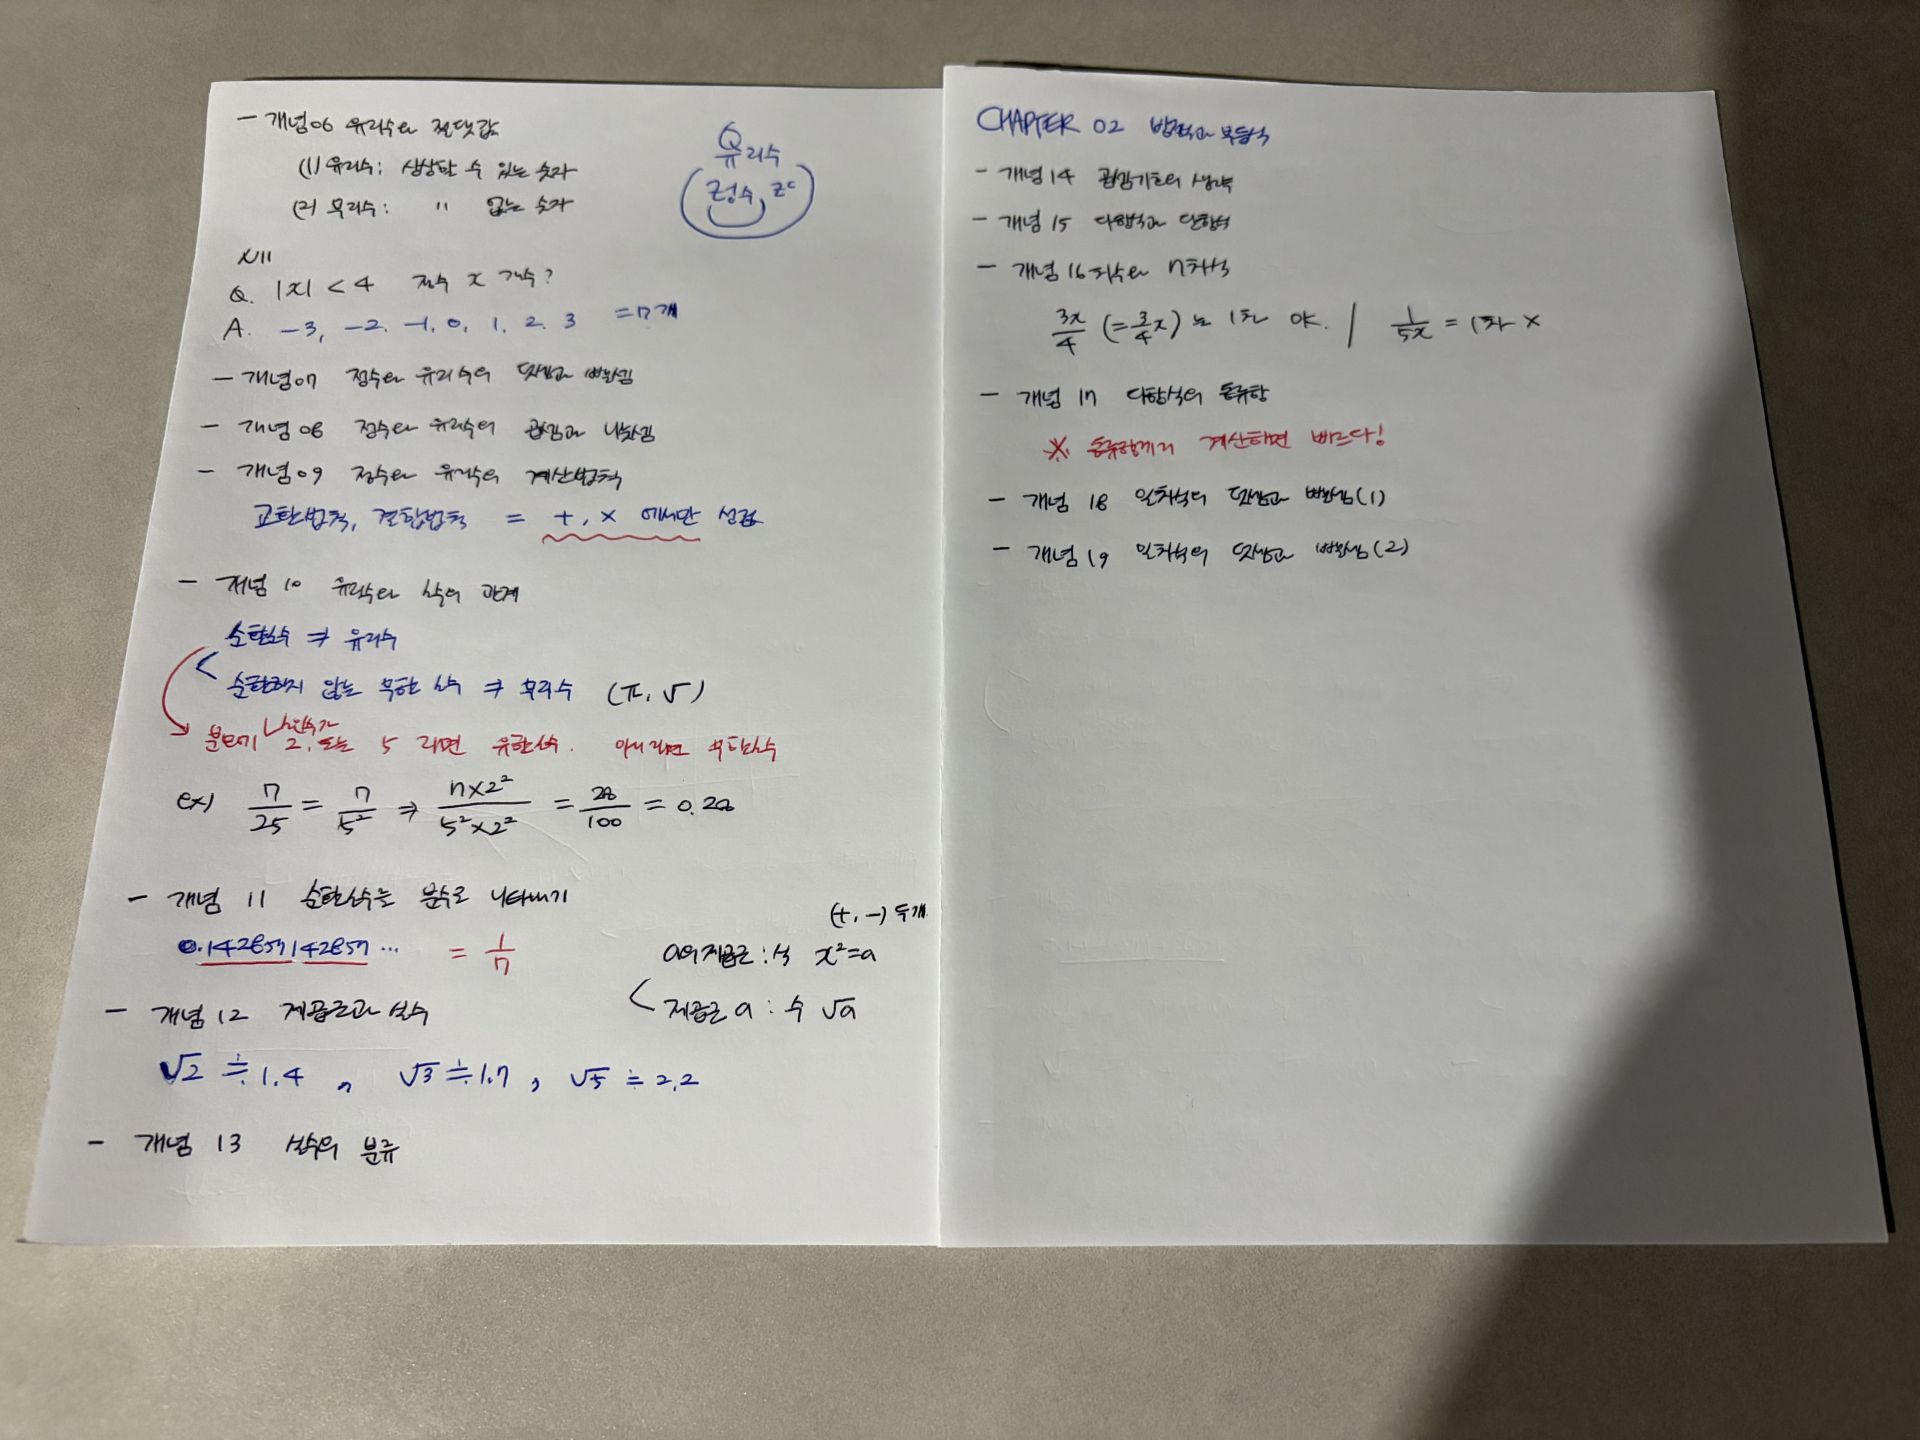 - 개념06 유리수와 절댓값
(1) 유리수: 상상할 수 있는 숫자
(2) 무리수: " 없는 숫자
Q
유리수
정수, Zᶜ
Q. |x| < 4 정수 x 개수?
A. -3, -2, -1, 0, 1, 2, 3 = 7개
- 개념07 정수와 유리수의 덧셈과 뺄셈
- 개념08 정수와 유리수의 곱셈과 나눗셈
- 개념09 정수와 유리수의 계산법칙
교환법칙, 결합법칙 = +, × 에서만 성립
- 개념 10 유리수와 소수의 관계
순환소수 ⇒ 유리수
순환하지 않는 무한소수 ⇒ 무리수 (π, √)
분모에 소인수가 2, 또는 5 라면 유한소수. 아니라면 무한소수
ex) 7/25 = 7/5² ⇒ 7×2²/5²×2² = 28/100 = 0.28
- 개념 11 순환소수를 분수로 나타내기
0.142857142857… = 1/7
(+, -) 두개
a의 제곱근 : 식 x²=a
제곱근 a : 수 √a
- 개념 12 제곱근과 실수
√2 ≒ 1.4, √3 ≒ 1.7, √5 ≒ 2.2
- 개념 13 실수의 분류
CHAPTER 02 방정식과 부등식
- 개념 14 곱셈기호의 생략
- 개념 15 다항식과 단항식
- 개념 16 차수와 n차식
3x/4 (=3/4x) 는 1차 OK. | 1/5x = 1차 ×
- 개념 17 다항식의 동류항
※ 동류항끼리 계산하면 빠르다!
- 개념 18 일차식의 덧셈과 뺄셈(1)
- 개념 19 일차식의 덧셈과 뺄셈(2)